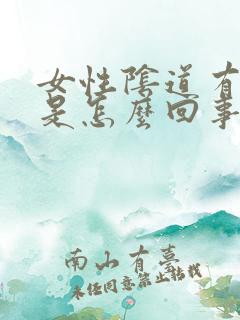 女性陰道有
是怎麼回事
南山有墓
未任同意禁止轉我